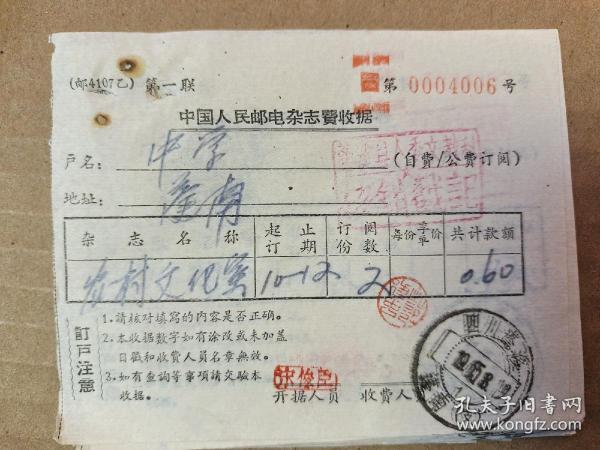 (邮4107乙) 第一联
第 0004006 号
中国人民邮电杂志費收据
户名: 中学 (自费/公费订阅)
地址:
杂志名称 起止订期 订阅份数 每份季单价 共计款額
农村文化室 10-12 2 0.60
訂戶注意
1.請核对填寫的內容是否正确。
2.本收据数字如有涂改或未加盖
日戳和收費人員名章無效。
3.如有查詢等事項請交驗本
收据。
开据人員 收費人
四川
孔夫子旧书网
www.kongfz.com